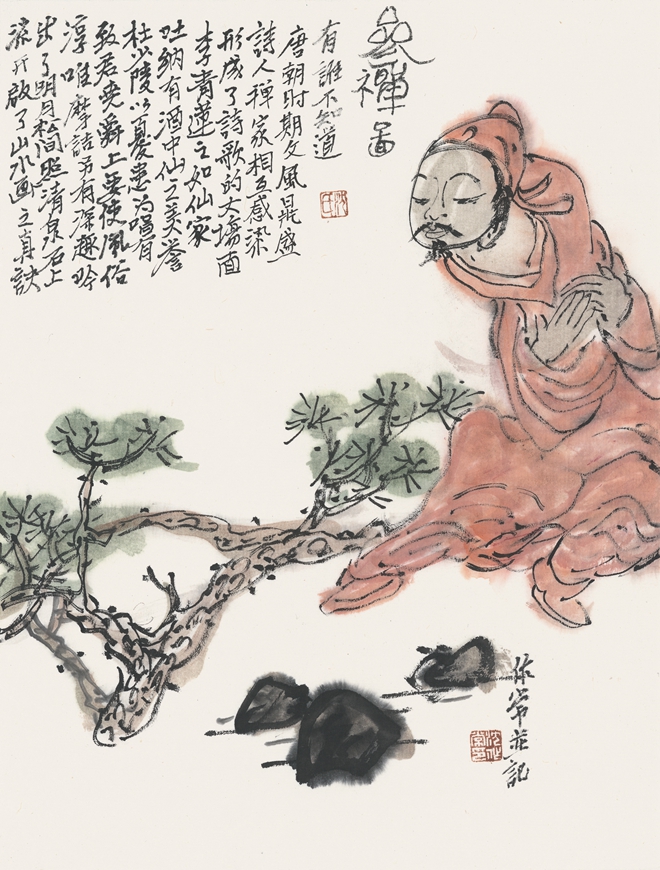 參禪啚
有誰不知道
唐朝时期文風鼎盛
詩人禅家相互感染
形成了詩歌的大場面
李青蓮之如仙家
吐納有酒中仙之美誉
杜少陵以憂患为唱有
致君尧舜上要使風俗
淳唯摩詰另有深趣吟
出了明月松间照清泉石上
流并啟了山水画之真訣
作常並記